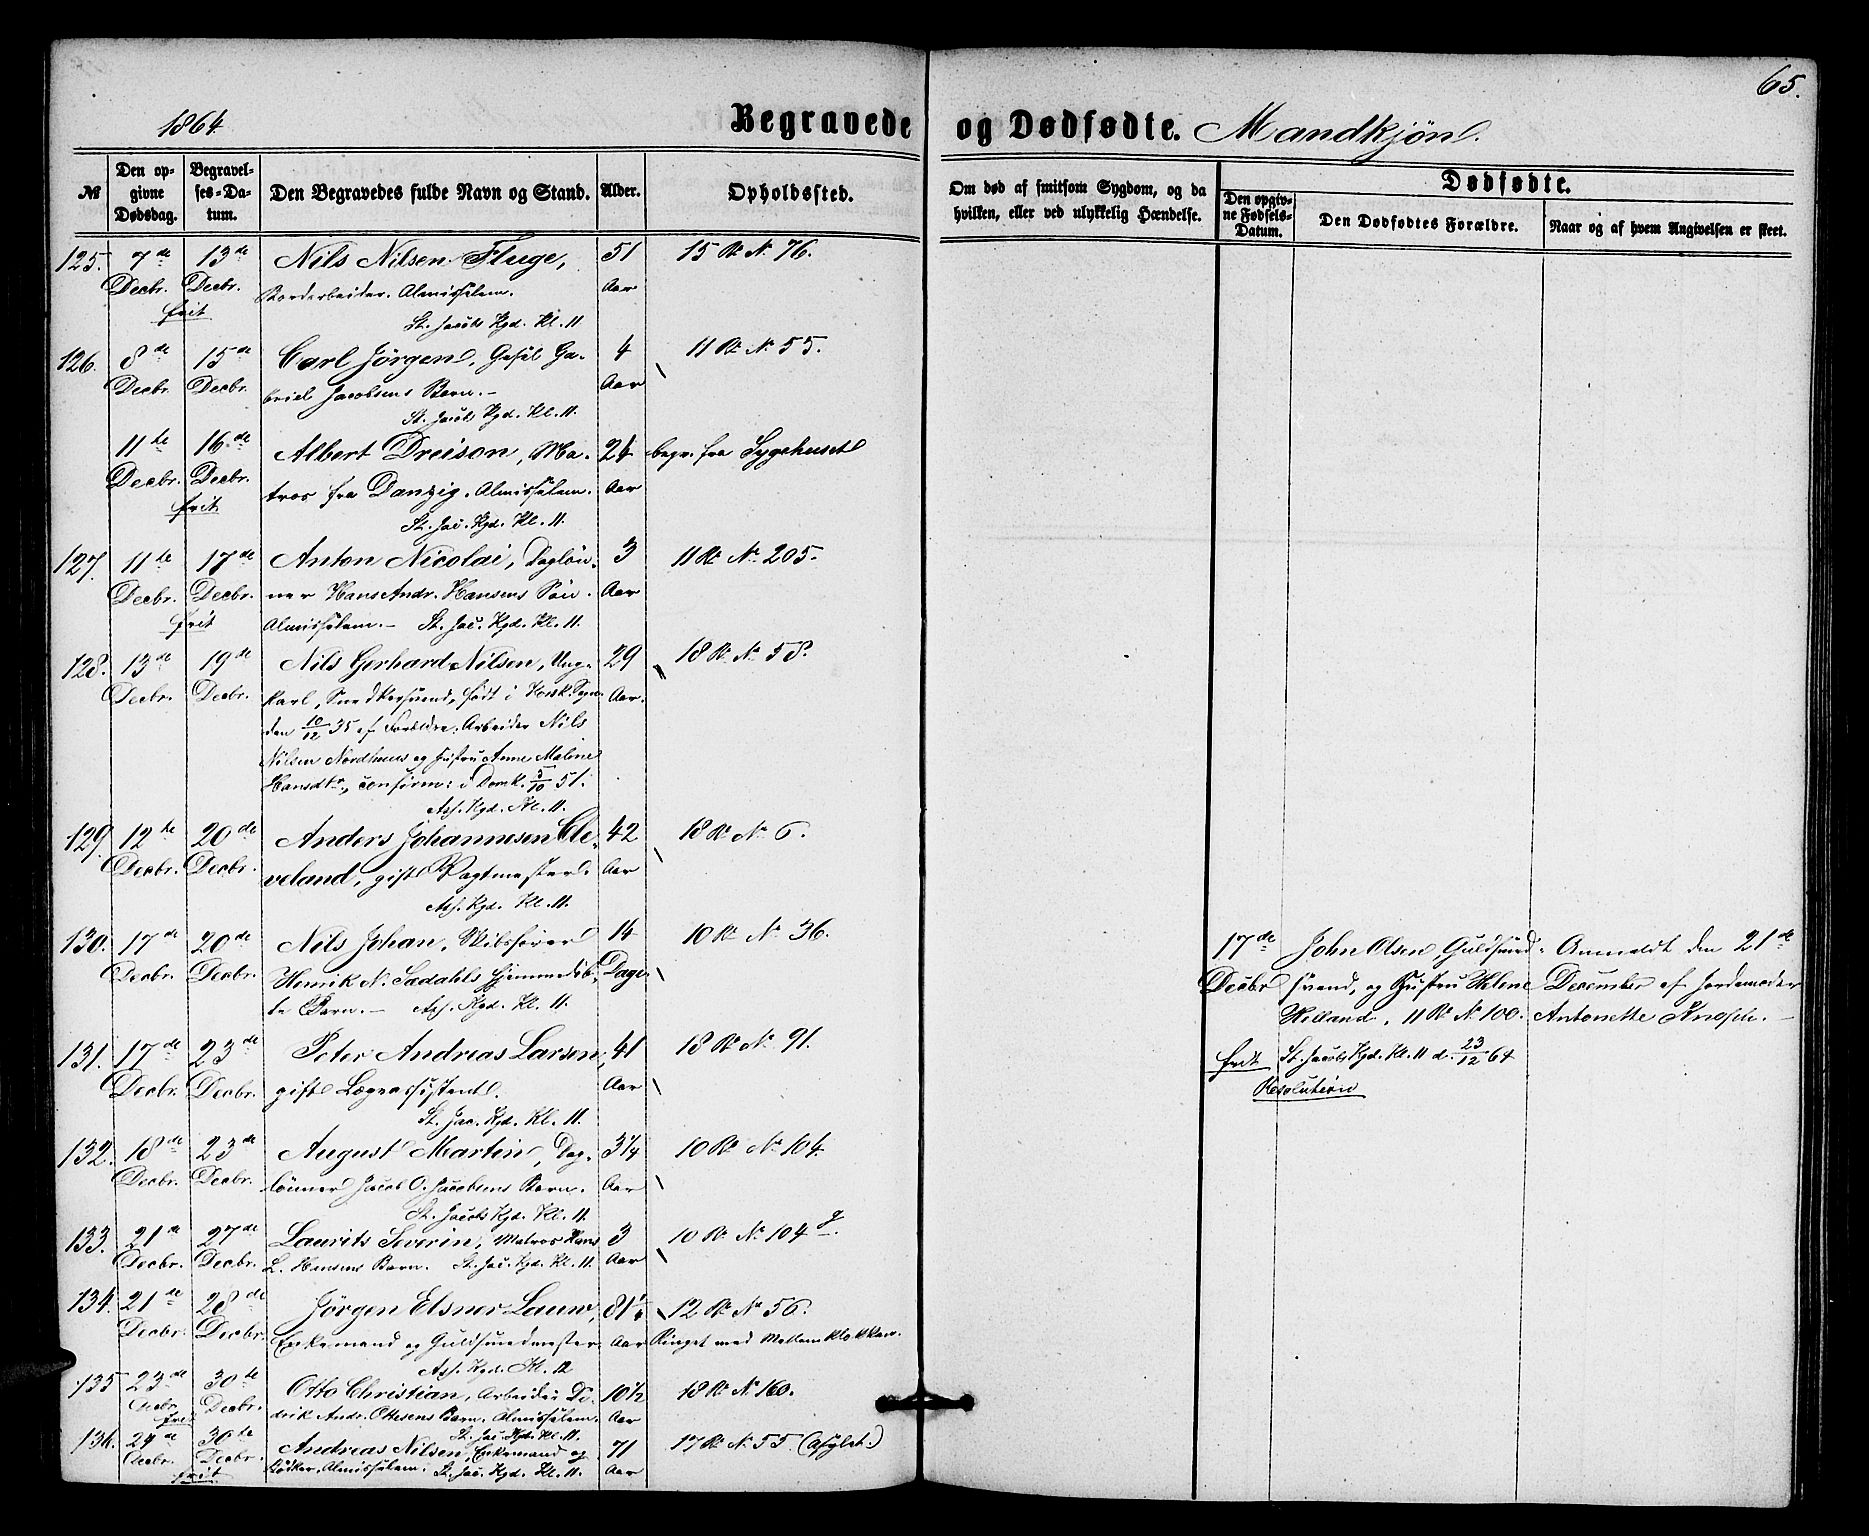 65.
1864
Begravede og Dødfødte. Mandkjøn.
№
Den opgivne Dødsdag.
Begravelses-Datum.
Den Begravedes fulde Navn og Stand.
Alder.
Opholdssted.
Om død af smitsom Sygdom, og da hvilken, eller ved ulykkelig Hændelse.
Dødfødte.
Den opgivne Fødsels-Datum.
Den Dødfødtes Forældre.
Naar og af hvem Angivelsen er skeet.
125. 7de 13de Nils Nilsen Fluge, 51 15 R. N. 76.
Decbr. Decbr. Aar
frit Almisselem.
St. Jacobs Kgd. Kl. 11
126. 8de 15de Carl Jørgen, Gesel Ga- 4 11 R. N. 55.
Decbr. Decbr. briel Jacobsens Barn.- Aar
St. Jacobs Kgd. Kl. 11.
11te 16de Albert Dreison, Ma- 24 begr. fra Sygehuset
Decbr. Decbr. tros fra Danzig. Almisselem. Aar
frit St. Jac. Kgd. Kl. 11.
127. 11te 17de Anton Nicolai, Dagløn- 3 11 R. N. 205.
Decbr. Decbr. ner Hans Andr. Hansens Søn. Aar
frit Almisselem.- St. Jac. Kgd. Kl. 11.
128. 13de 19de Nils Gerhard Nilsen, Ung- 29 18 R. N. 58.
Decbr. Decbr. karl, Snedkersvend, født i Korsk. Sogn Aar.
den 10/12 35 af Forældre: Arbeider Nils
Nilsen Nordhuus og Hustru Anne Malene
Hansdtr., confirm: i Domk. 5/10 51.
Ass. Kgd. Kl. 11.
129. 12te 20de Anders Johannesen Cle- 42 18 R. N. 6.
Decbr. Decbr. veland, gift Vagtmester. Aar
Ass. Kgd. Kl. 11.
130. 17de 20de Nils Johan, Skibsfører 14 10 R. N. 36.
Decbr. Decbr. Henrik N. Sadahls hjemmedøb- Dage.
te Barn.- Ass. Kgd. Kl. 11.
17de John Olsen, Guldsmed- Anmeldt den 21de
Decbr svend, og Hustru Helene December af Jordemoder
Wiland, 11 R. N. 100. Antonette Knoph.-
frit St. Jacobs Kgd. Kl. 11 d. 23/12 64
Resolution
131. 17de 23de Peter Andreas Larsen, 41 18 R. N. 91.
Decbr. Decbr. gift Lægeassistent. Aar
St. Jac. Kgd. Kl. 11.
132. 18de 23de August Martin, Dag- 3 1/4 10 R. N. 104.
Decbr. Decbr. lønner Jacob O. Jacobsens Barn. Aar
St. Jacobs Kgd. Kl. 11.
133. 21de 27de Laurits Severin, Matros Hans 3 10 R. N. 104
Decbr. Decbr. L. Hansens Barn. St. Jac. Kgd. Kl. 11 Aar
134. 21de 28de Jørgen Elsner Lauw, 81 12 R. N. 56.
Decbr. Decbr. Enkemand og Guldsmedmester. Aar Ringet med Mellemklokken.
Ass. Kgd. Kl. 12
135 23de 30te Otto Christian, Arbeider Di- 10 1/2 18 R. N. 160.
Decbr. Decbr. drik Andr. Ottesens Barn. Almisselem. Aar
frit St. Jac. Kgd. Kl. 11.
136. 24de 30te Andreas Nilsen, Enkemand og 71 17 R. N. 55. (Asylet.)
Decbr. Decbr. Bødker. Almisselem. St. Jac. Kgd. Kl. 11. Aar
frit